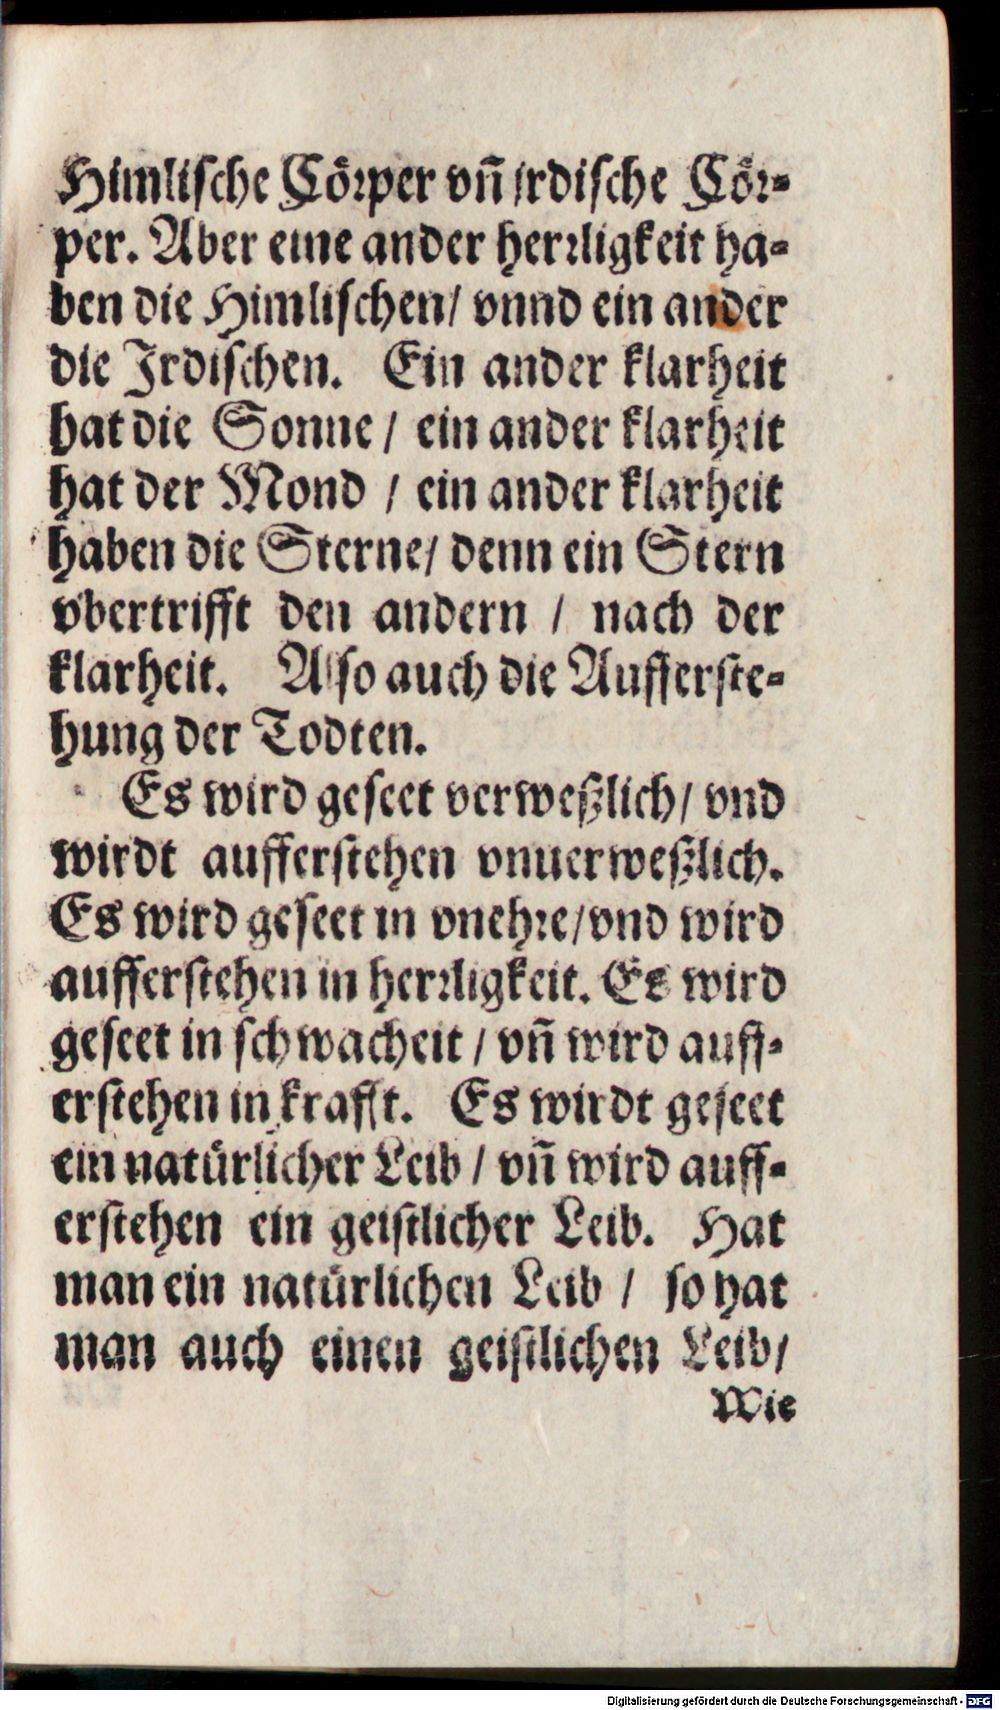 Himlische Cörper vñ irdische Cör-
per. Aber eine ander herrligkeit ha-
ben die Himlischen/ vnnd ein ander
die Jrdischen. Ein ander klarheit
hat die Sonne / ein ander klarheit
hat der Mond / ein ander klarheit
haben die Sterne/ denn ein Stern
vbertrifft den andern / nach der
klarheit. Also auch die Aufferste-
hung der Todten.
Es wird geseet verweßlich/ vnd
wirdt aufferstehen vnuerweßlich.
Es wird geseet in vnehre/vnd wird
aufferstehen in herrligkeit. Es wird
geseet in schwacheit / vñ wird auff-
erstehen in krafft. Es wirdt geseet
ein natürlicher Leib / vñ wird auff-
erstehen ein geistlicher Leib. Hat
man ein natürlichen Leib / so hat
man auch einen geistlichen Leib/
Wie
Digitalisierung gefördert durch die Deutsche Forschungsgemeinschaft - DFG